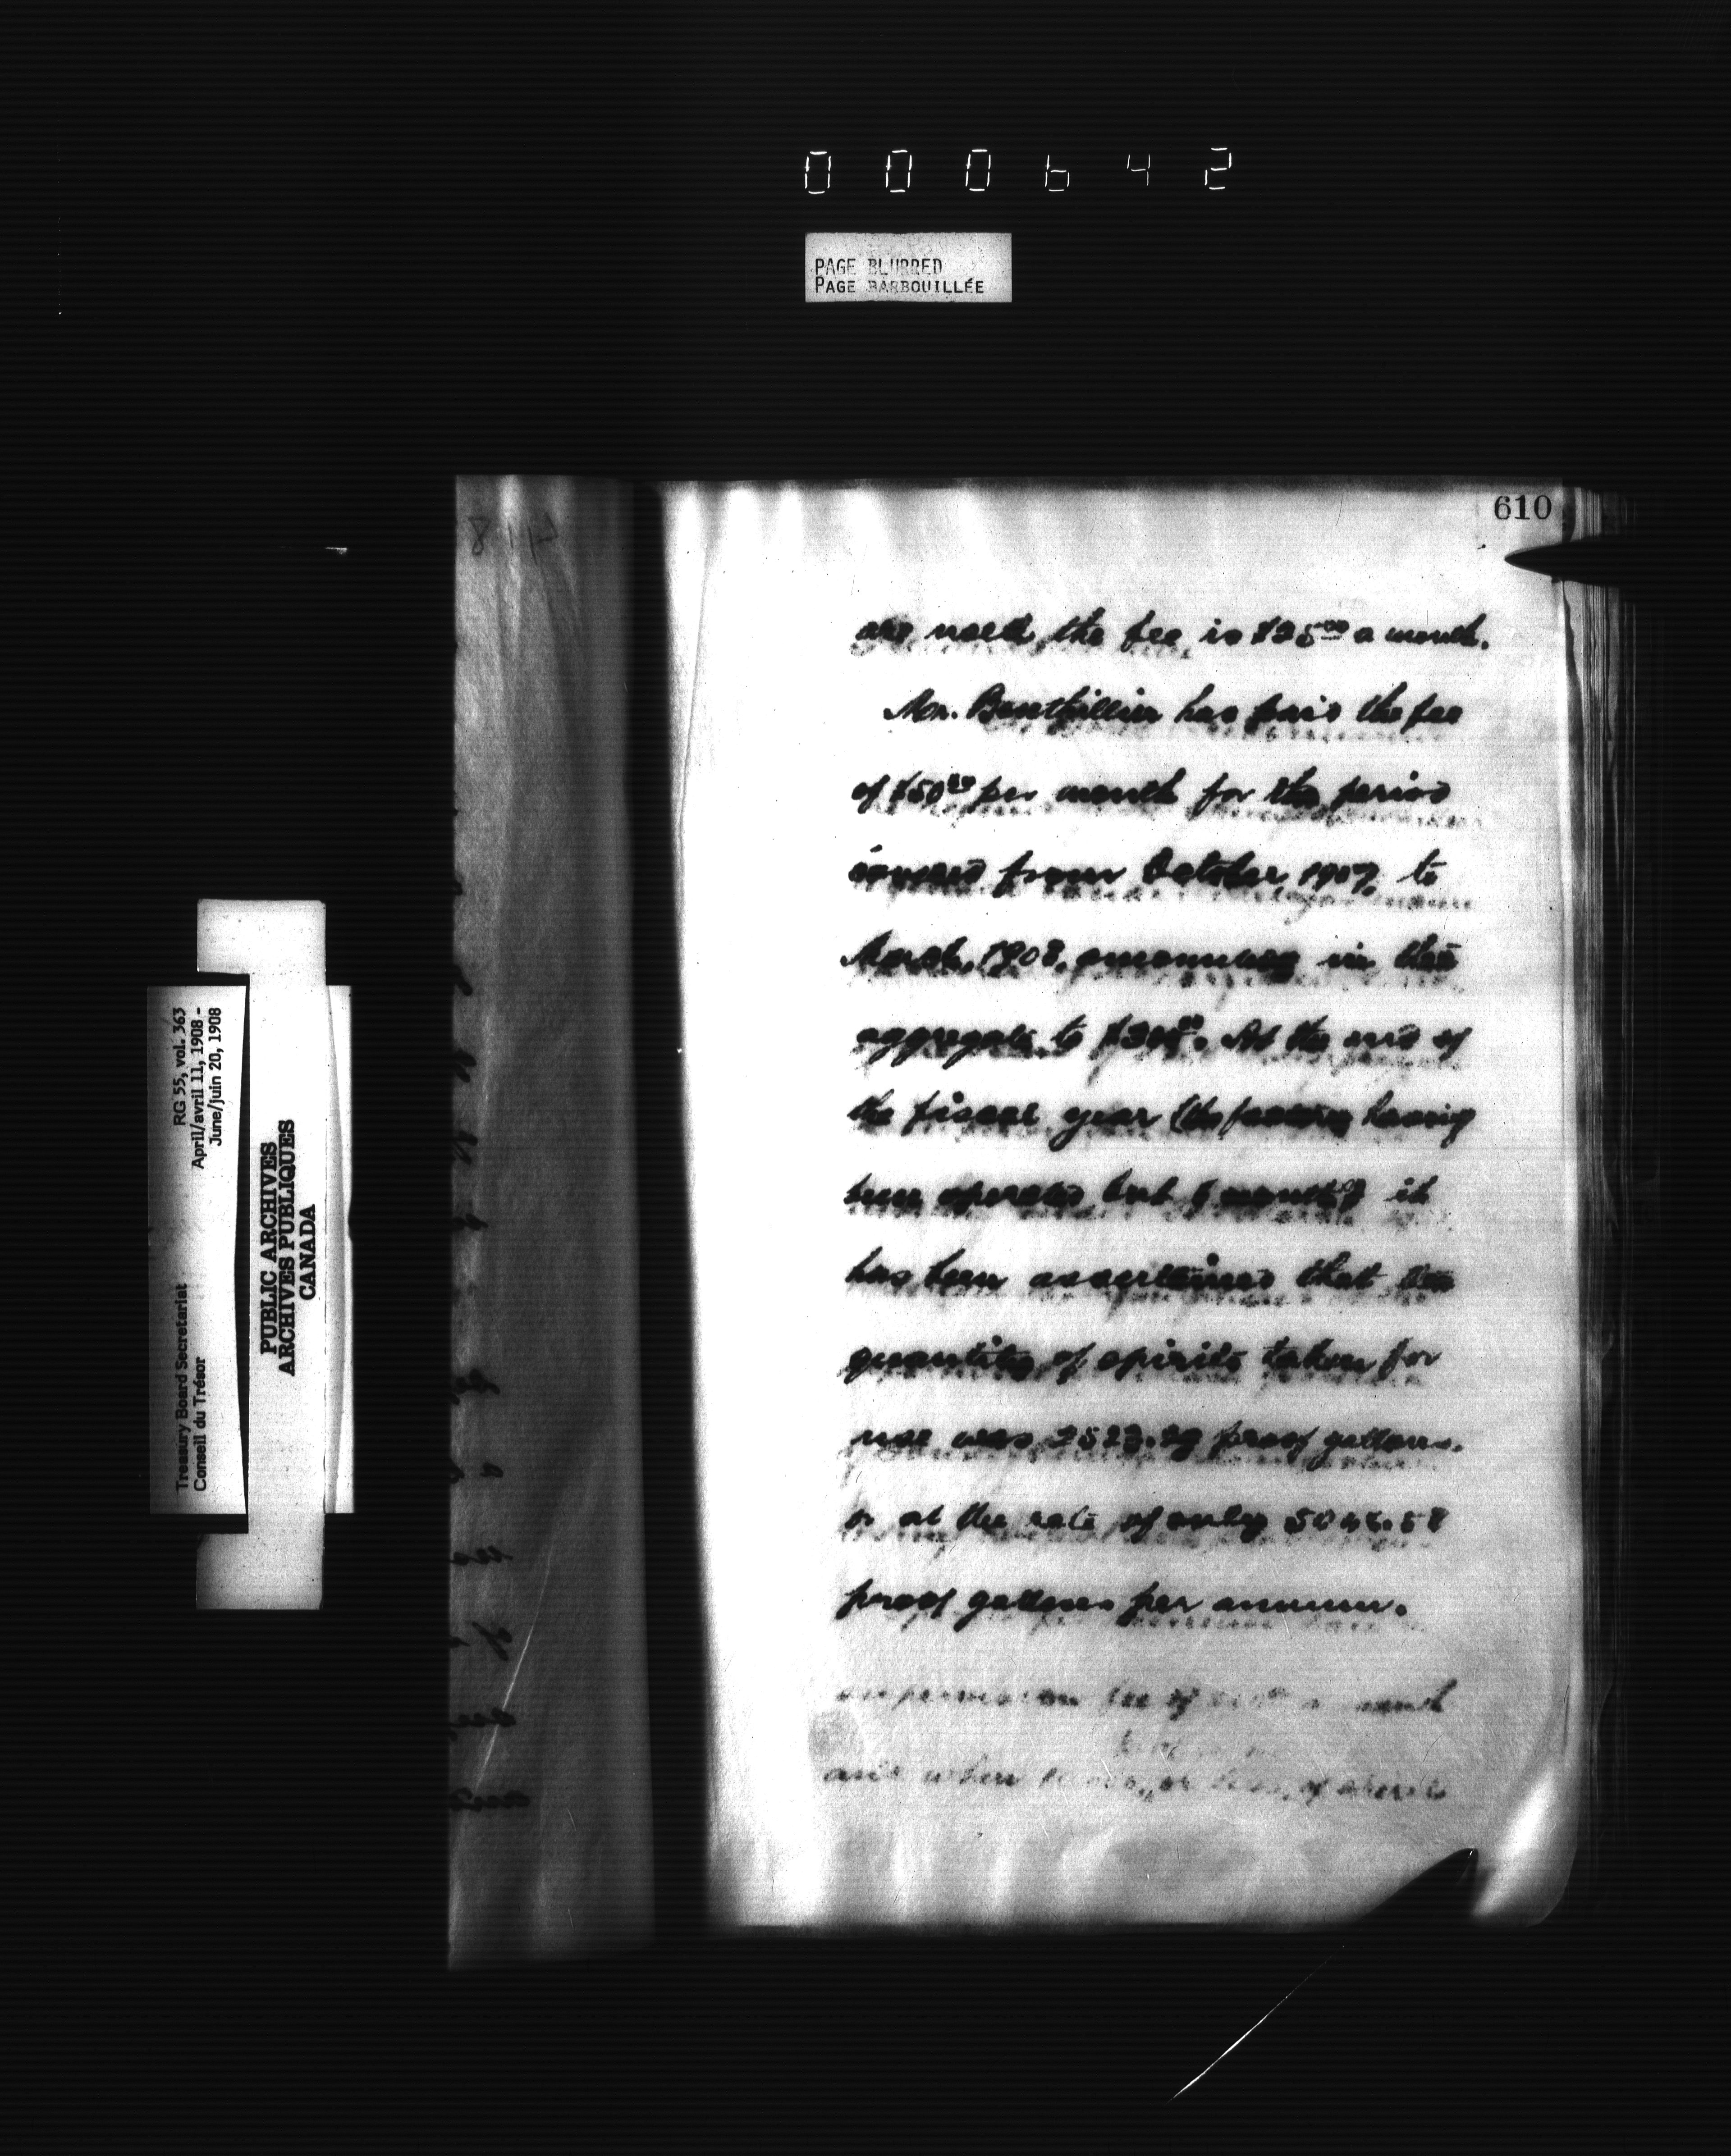 000642
PAGE BLURRED
PAGE BARBOUILLÉE
610
are used, the fee is $25.00 a month.
Mr. Benthillier has paid the fee
of $50.00 per month for the period
from October, 1907, to
March, 1908, amounting in the
aggregate to $300.00. At the end of
the fiscal year (the factory having
been operated but 6 months) it
has been ascertained that the
quantity of spirits taken for
use was 2523.29 proof gallons,
or at the rate of only 5046.58
proof gallons per annum.
supervision fee of a month
and when or less, of spirits
RG 55, vol. 363
April/avril 11, 1908 -
June/juin 20, 1908
Treasury Board Secretariat
Conseil du Trésor
PUBLIC ARCHIVES
ARCHIVES PUBLIQUES
CANADA